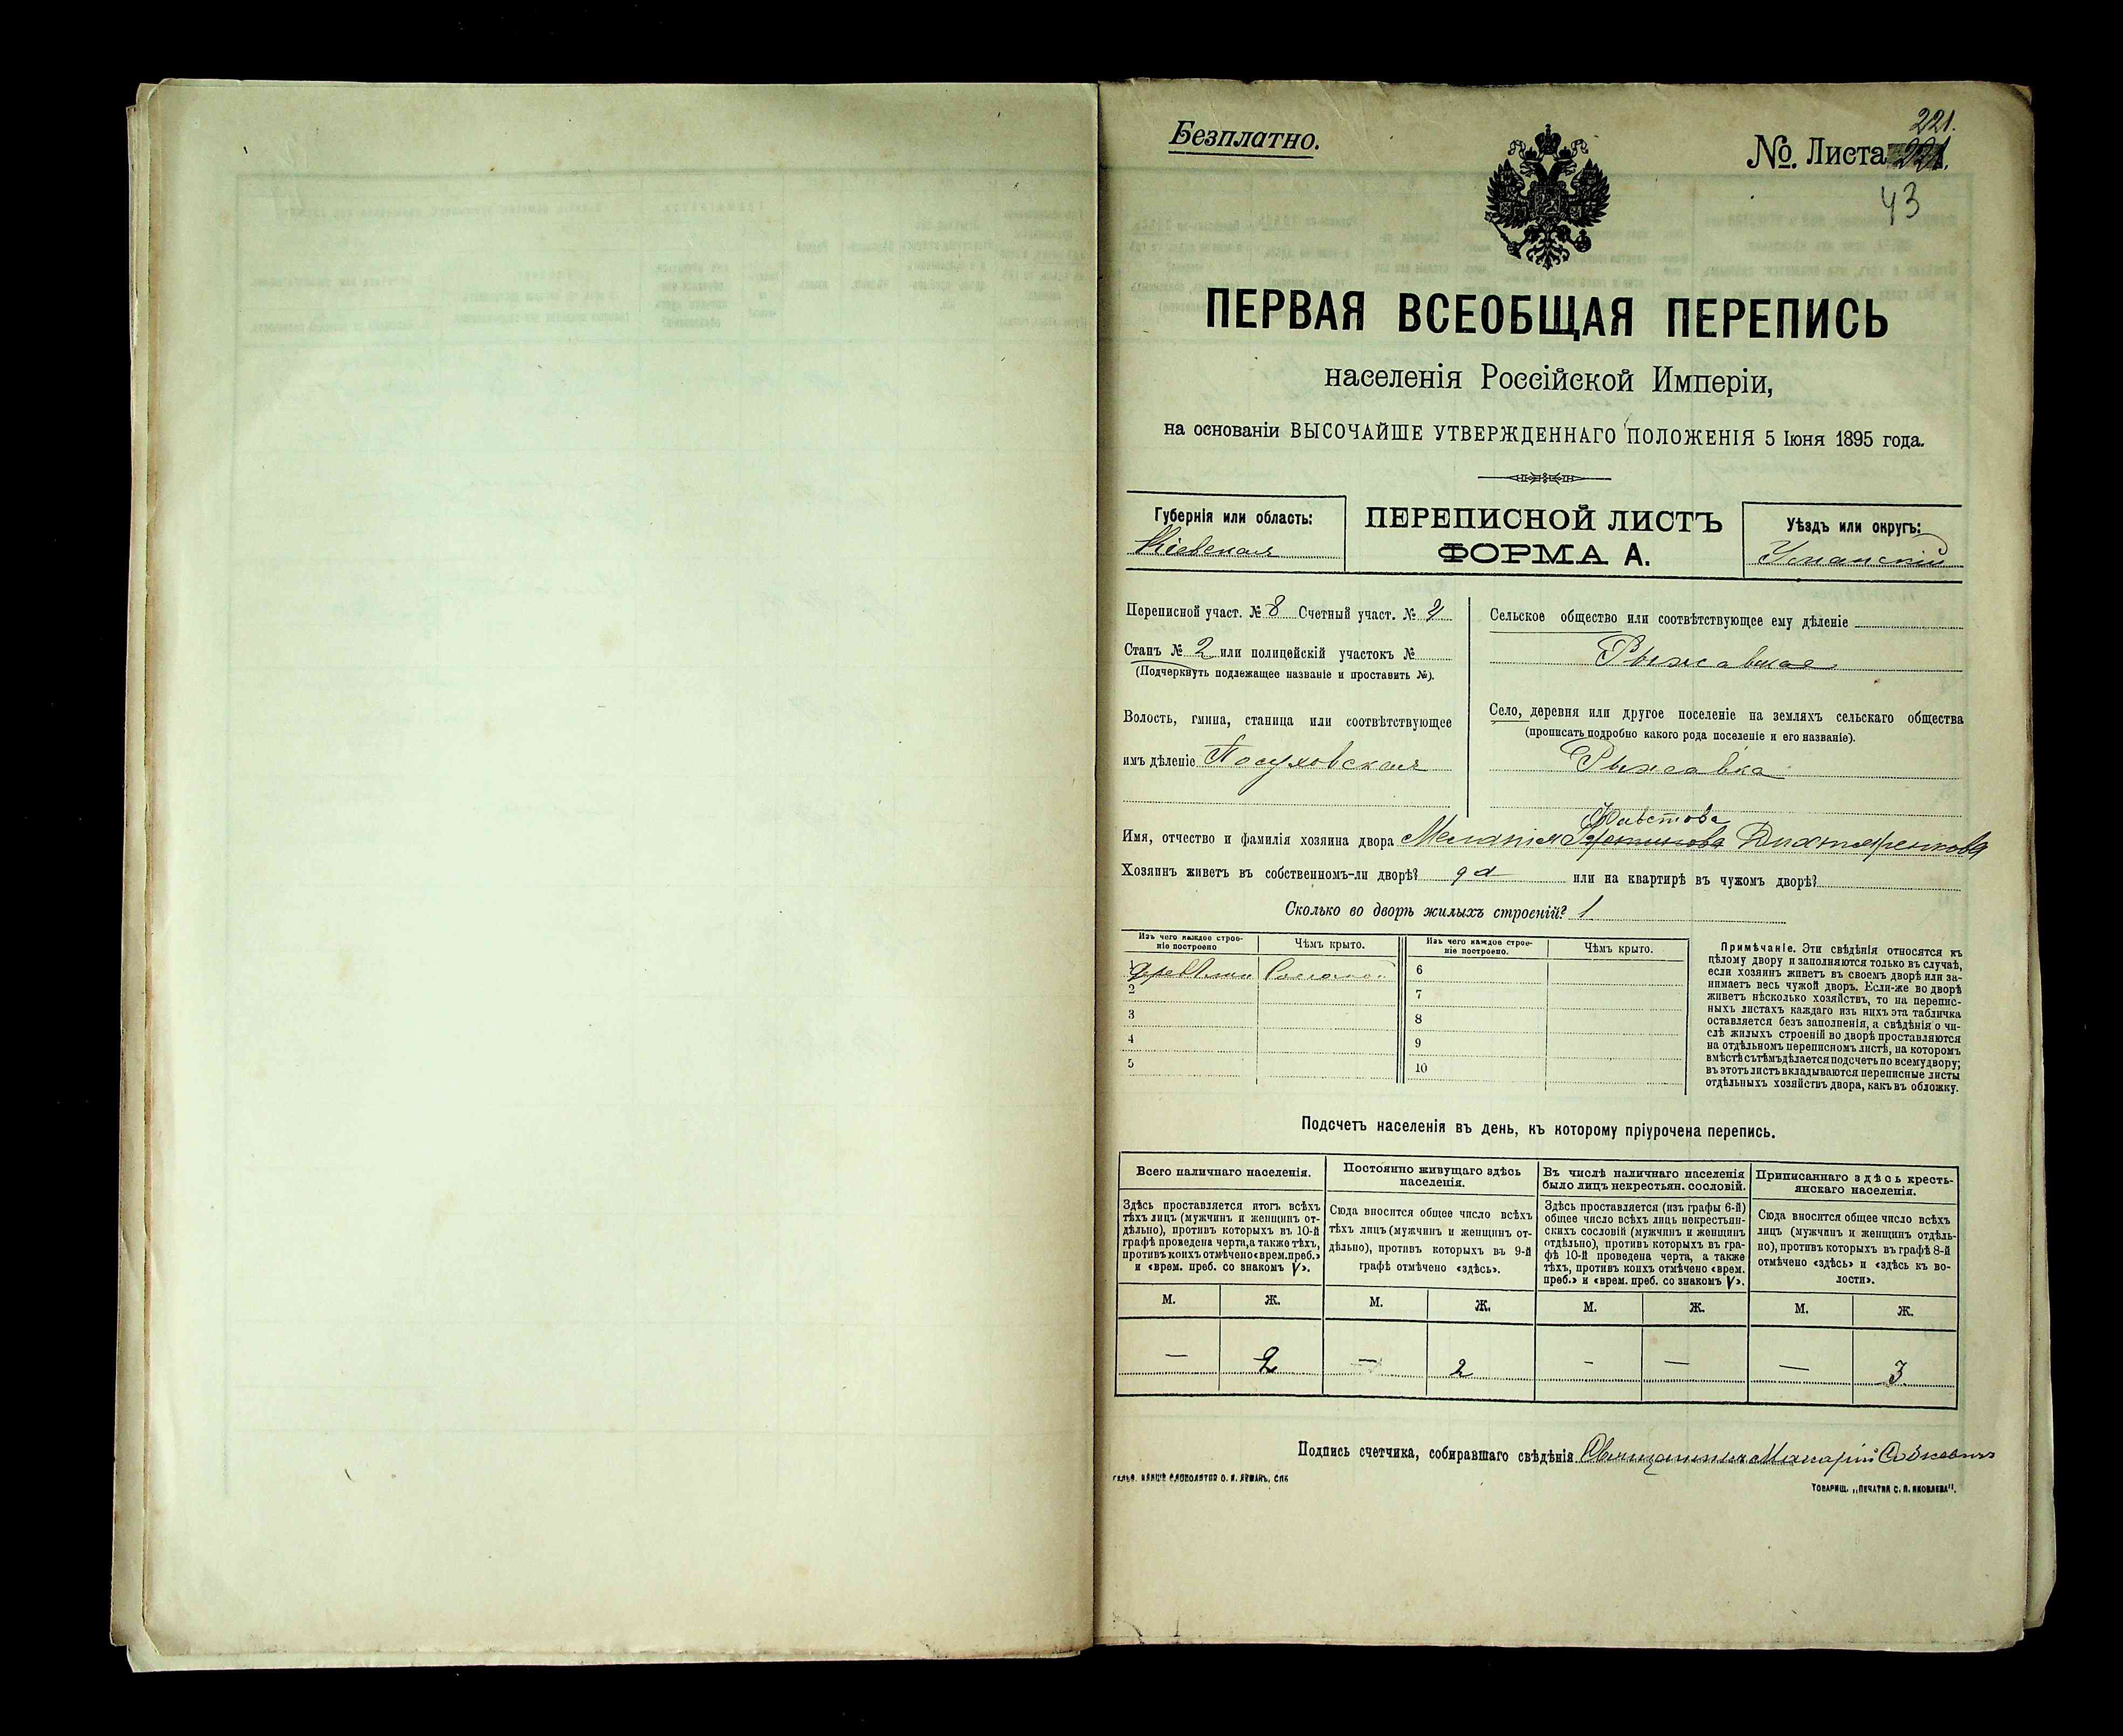 Безплатно.
221.
№. Листа 221.
43
ПЕРВАЯ ВСЕОБЩАЯ ПЕРЕПИСЬ
населенія Россійской Имперіи,
на основаніи ВЫСОЧАЙШЕ УТВЕРЖДЕННАГО ПОЛОЖЕНІЯ 5 Іюня 1895 года.
Губернія или область:
Кіевская
ПЕРЕПИСНОЙ ЛИСТЪ
ФОРМА А.
Уѣздъ или округъ:
Уманскій
Переписной участ. № 8 Счетный участ. №
Станъ № 2 или полицейскій участокъ №
(Подчеркнуть подлежащее названіе и проставить №).
Волость, гмина, станица или соотвѣтствующее
имъ дѣленіе Посуховская
Сельское общество или соотвѣтствующее ему дѣленіе
Рыжавское
Село, деревня или другое поселеніе на земляхъ сельскаго общества
(прописать подробно какого рода поселеніе и его названіе).
Рыжавка
Фавстова
Имя, отчество и фамилія хозяина двора Меланія Дихтяренкова
Хозяинъ живетъ въ собственномъ-ли дворѣ? да или на квартирѣ въ чужомъ дворѣ?
Сколько во дворѣ жилыхъ строеній? 1
Изъ чего каждое строе-
ніе построено
Чѣмъ крыто.
Изъ чего каждое строе-
ніе построено.
Чѣмъ крыто.
1 Соломой 6
2 7
3 8
4 9
5 10
Примѣчаніе. Эти свѣдѣнія относятся къ
цѣлому двору и заполняются только въ случаѣ,
если хозяинъ живетъ въ своемъ дворѣ или за-
нимаетъ весь чужой дворъ. Если-же во дворѣ
живетъ нѣсколько хозяйствъ, то на перепис-
ныхъ листахъ каждаго изъ нихъ эта табличка
оставляется безъ заполненія, а свѣдѣнія о чи-
слѣ жилыхъ строеній во дворѣ проставляются
на отдѣльномъ переписномъ листѣ, на которомъ
вмѣстѣ съ тѣмъ дѣлается подсчетъ по всему двору;
въ этотъ листъ вкладываются переписные листы
отдѣльныхъ хозяйствъ двора, какъ въ обложку.
Подсчетъ населенія въ день, къ которому пріурочена перепись.
Всего наличнаго населенія.
Здѣсь проставляется итогъ всѣхъ
тѣхъ лицъ (мужчинъ и женщинъ от-
дѣльно), противъ которыхъ въ 10-й
графѣ проведена черта, а также тѣхъ,
противъ коихъ отмѣчено «врем. преб.»
и «врем. преб. со знакомъ V».
Постоянно живущаго здѣсь
населенія.
Сюда вносится общее число всѣхъ
тѣхъ лицъ (мужчинъ и женщинъ от-
дѣльно), противъ которыхъ въ 9-й
графѣ отмѣчено «здѣсь».
Въ числѣ наличнаго населенія
было лицъ некрестьян. сословій.
Здѣсь проставляется (изъ графы 6-й)
общее число всѣхъ лицъ некрестьян-
скихъ сословій (мужчинъ и женщинъ
отдѣльно), противъ которыхъ въ гра-
фѣ 10-й проведена черта, а также
тѣхъ, противъ коихъ отмѣчено «врем.
преб.» и «врем. преб. со знакомъ V».
Приписаннаго здѣсь кресть-
янскаго населенія.
Сюда вносится общее число всѣхъ
лицъ (мужчинъ и женщинъ отдѣль-
но), противъ которыхъ въ графѣ 8-й
отмѣчено «здѣсь» и «здѣсь къ во-
лости».
М. Ж. М. Ж. М. Ж. М. Ж.
— 2 — 2 - — — 3
Подпись счетчика, собиравшаго свѣдѣнія Макарій
ТОВАРИЩ. „ПЕЧАТНЯ С. П. ЯКОВЛЕВА".